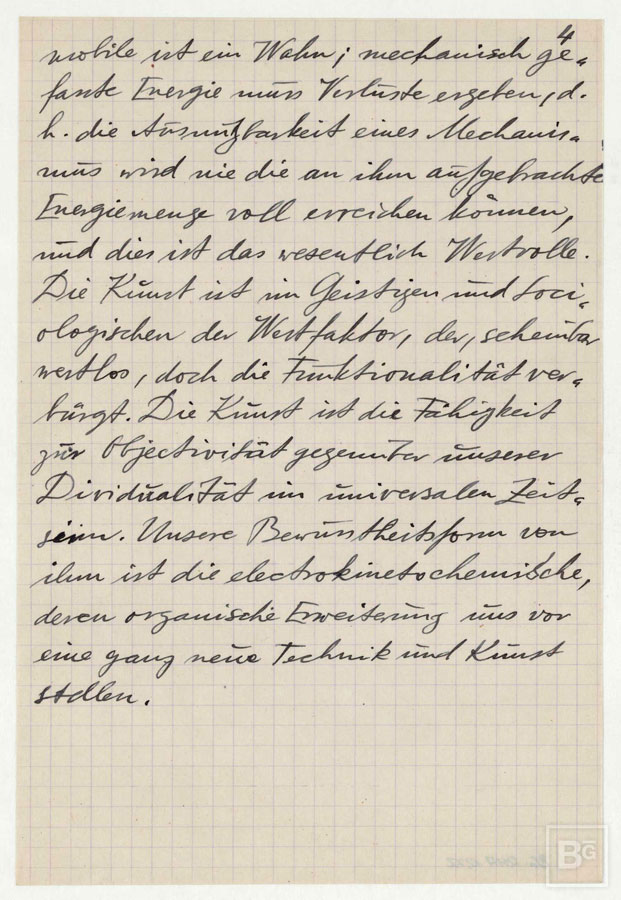 4
mobile ist ein Wahn; mechanisch ge-
fasste Energie muss Verluste ergeben, d.
h. die Ausnutzbarkeit eines Mechanis-
mus wird nie die an ihm aufgebrachte
Energiemenge voll erreichen können,
und dies ist das wesentlich Wertvolle.
Die Kunst ist im Geistigen und Soci-
ologischen der Wertfaktor, der, scheinbar
wertlos, doch die Funktionalität ver-
bürgt. Die Kunst ist die Fähigkeit
zur Objectivität gegenüber unserer
Dividualität im universalen Zeit-
sein. Unsere Bewusstheitsform von
ihm ist die electrokinetochemische,
deren organische Erweiterung uns vor
eine ganz neue Technik und Kunst
stellen.
BG